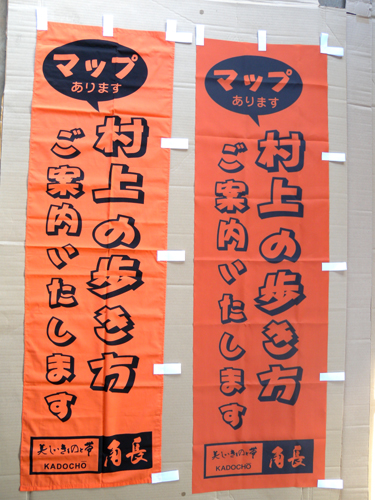 マップ
あります
村上の歩き方
ご案内いたします
美しいきものと帯
KADOCHO
角長
マップ
あります
村上の歩き方
ご案内いたします
美しいきものと帯
KADOCHO
角長